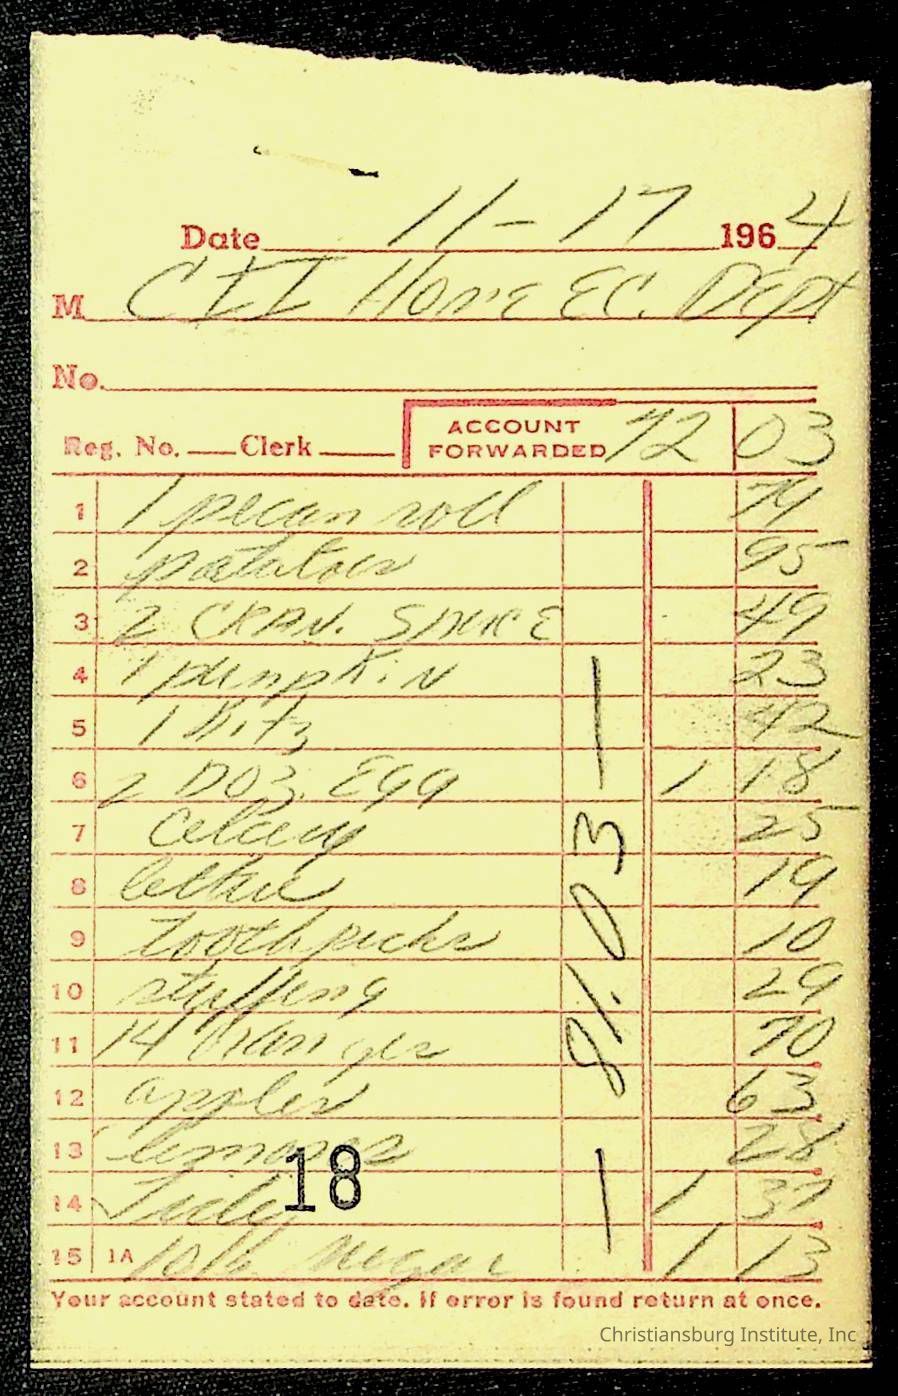 Date 11-17 1964
M CII Home EC. Dept
No.
Reg. No. Clerk ACCOUNT FORWARDED 72 03
1 1 pecan roll 79
2 potatoes 95
3 2 CRAN. SAUCE 49
4 1 pumpkin 23
5 1 Ritz 42
6 2 DOZ. EGG 1 18
7 Celery 25
8 lettuce 19
9 toothpicks 10
10 stuffing 29
11 14 oranges 70
12 apples 63
13 lemons 28
14 1 37
15 1A 10 lb sugar 1 13
— 81.03 —
18
Your account stated to date. If error is found return at once.
Christiansburg Institute, Inc